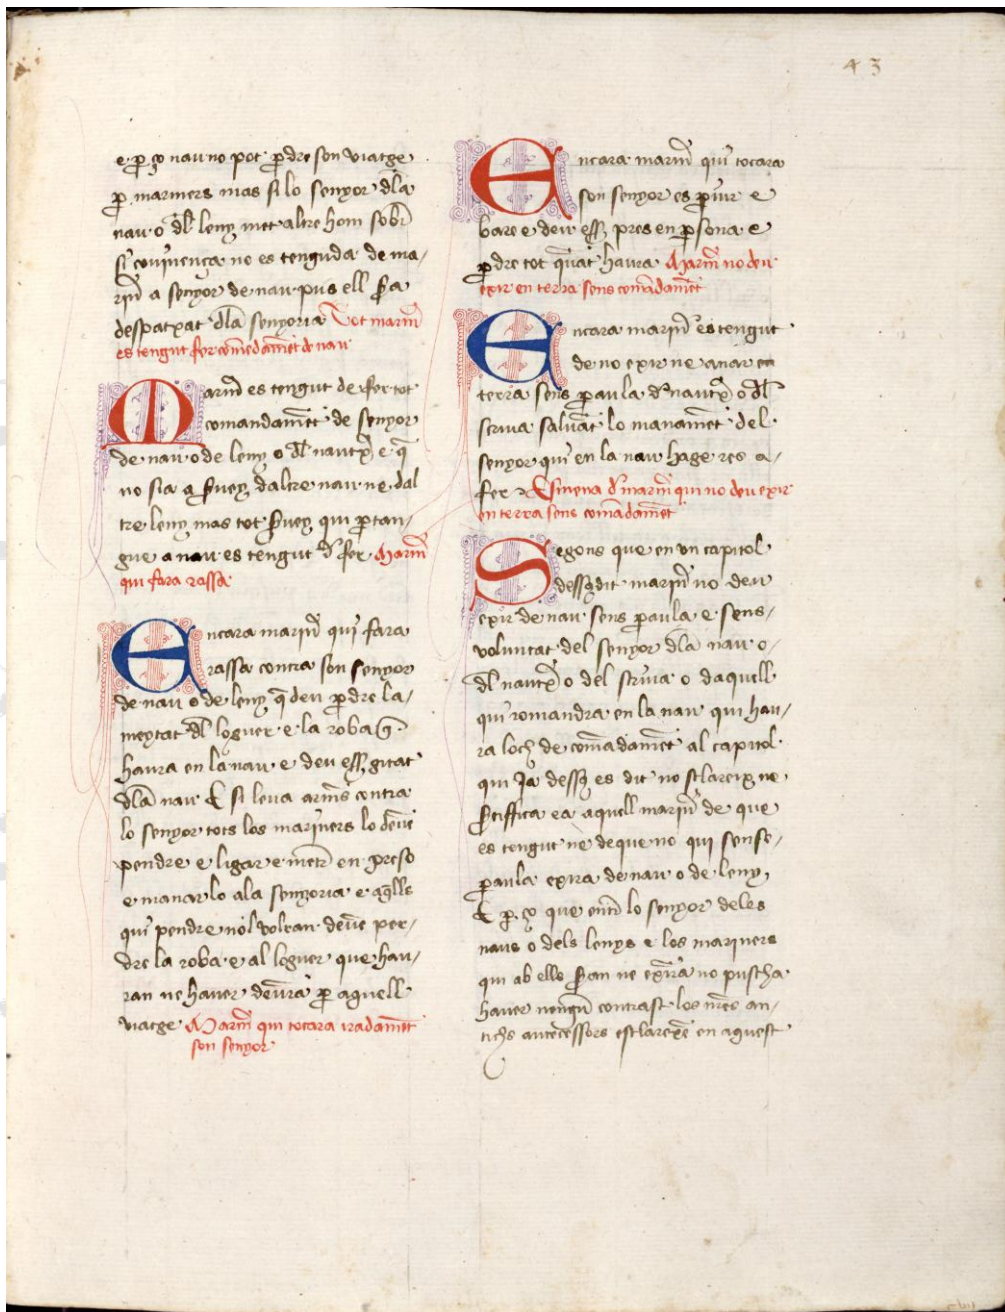 43
e p ço nau no pot pdre son viatge
p mariners mas si lo senyor dla
nau o dl leny met altre hom sobre
si couinença no es tenguda de ma/
rin a senyor de nau pus ell sia
despatxat dla senyoria Tot marin
es tengut fer comedamet de nau
Marin es tengut de fer tot
comandamet de senyor
de nau o de leny o dl nautxe e q
no sia a seruey daltre nau ne dal
tre leny mas tot seruey qui ptan/
gue a nau es tengut d fer Marin
qui fara rassa
Encara marin qui fara
rassa contra son senyor
de nau o de leny q deu pdre la/
meytat dl loguer e la roba q
haura en la nau e deu esser gitat
dla nau E si leua armes contra
lo senyor tots los mariners lo deue
pendre e ligar e metre en preso
e manar lo ala senyoria e aqlls
qui pendre nol volran deue per/
dre la roba e al loguer que hau/
ran ne hauer deura p aquell
viatge Marin qui tocara iradamet
son senyor
Encara marin qui tocara
son senyor es piur e
bare e deu esser pres en psona e
pdre tot quat haura Marin no deu
exir en terra sens comadamet
Encara marin es tengut
de no exir ne anar en
terra sens paula d nautxe o dl
scriua saluat lo manamet del
senyor qui en la nau hage res a/
fer Esmena d marin qui no deu exir
en terra sens comadamet
Segons que en vn capitol
dessus dit marin no deu
exir de nau sens paula e sens/
voluntat del senyor dla nau o/
dl nautxe o del scriua o daquell
qui romandra en la nau qui hau/
ra loch de comadamet al capitol
qui Ja dessus es dit no sclareix ne
certiffica ea aquell marin de que
es tengut ne de que no qui sense/
paula exira de nau o de leny
E p ço que entre lo senyor deles
naus o dels lenys e los mariners
qui ab ells seran ne exira no puscha
hauer nengu contrast los nres an/
tichs antecessors esclarexe en aquest